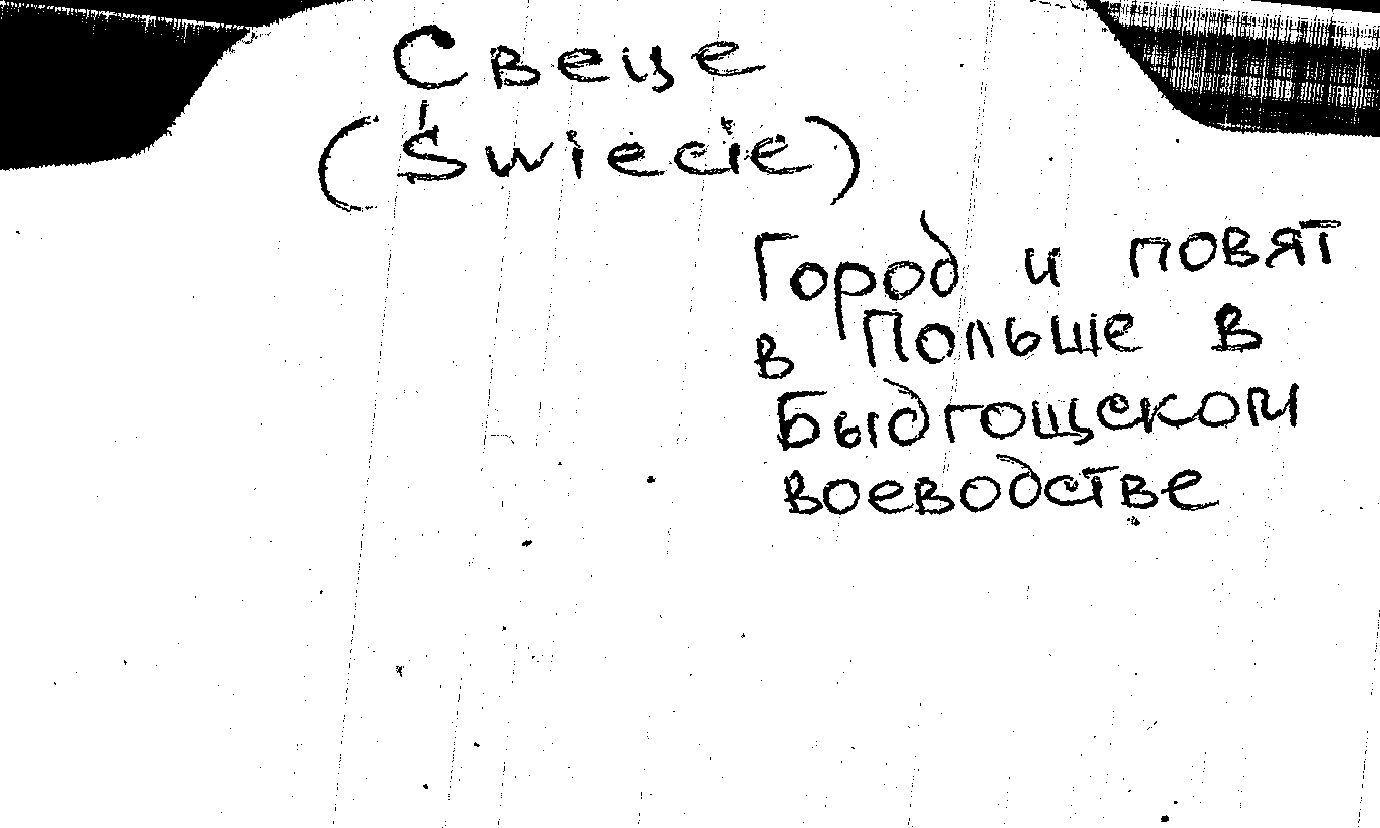 Свеце
(Świecie)
Город и повят
в Польше в
Быдгощском
воеводстве